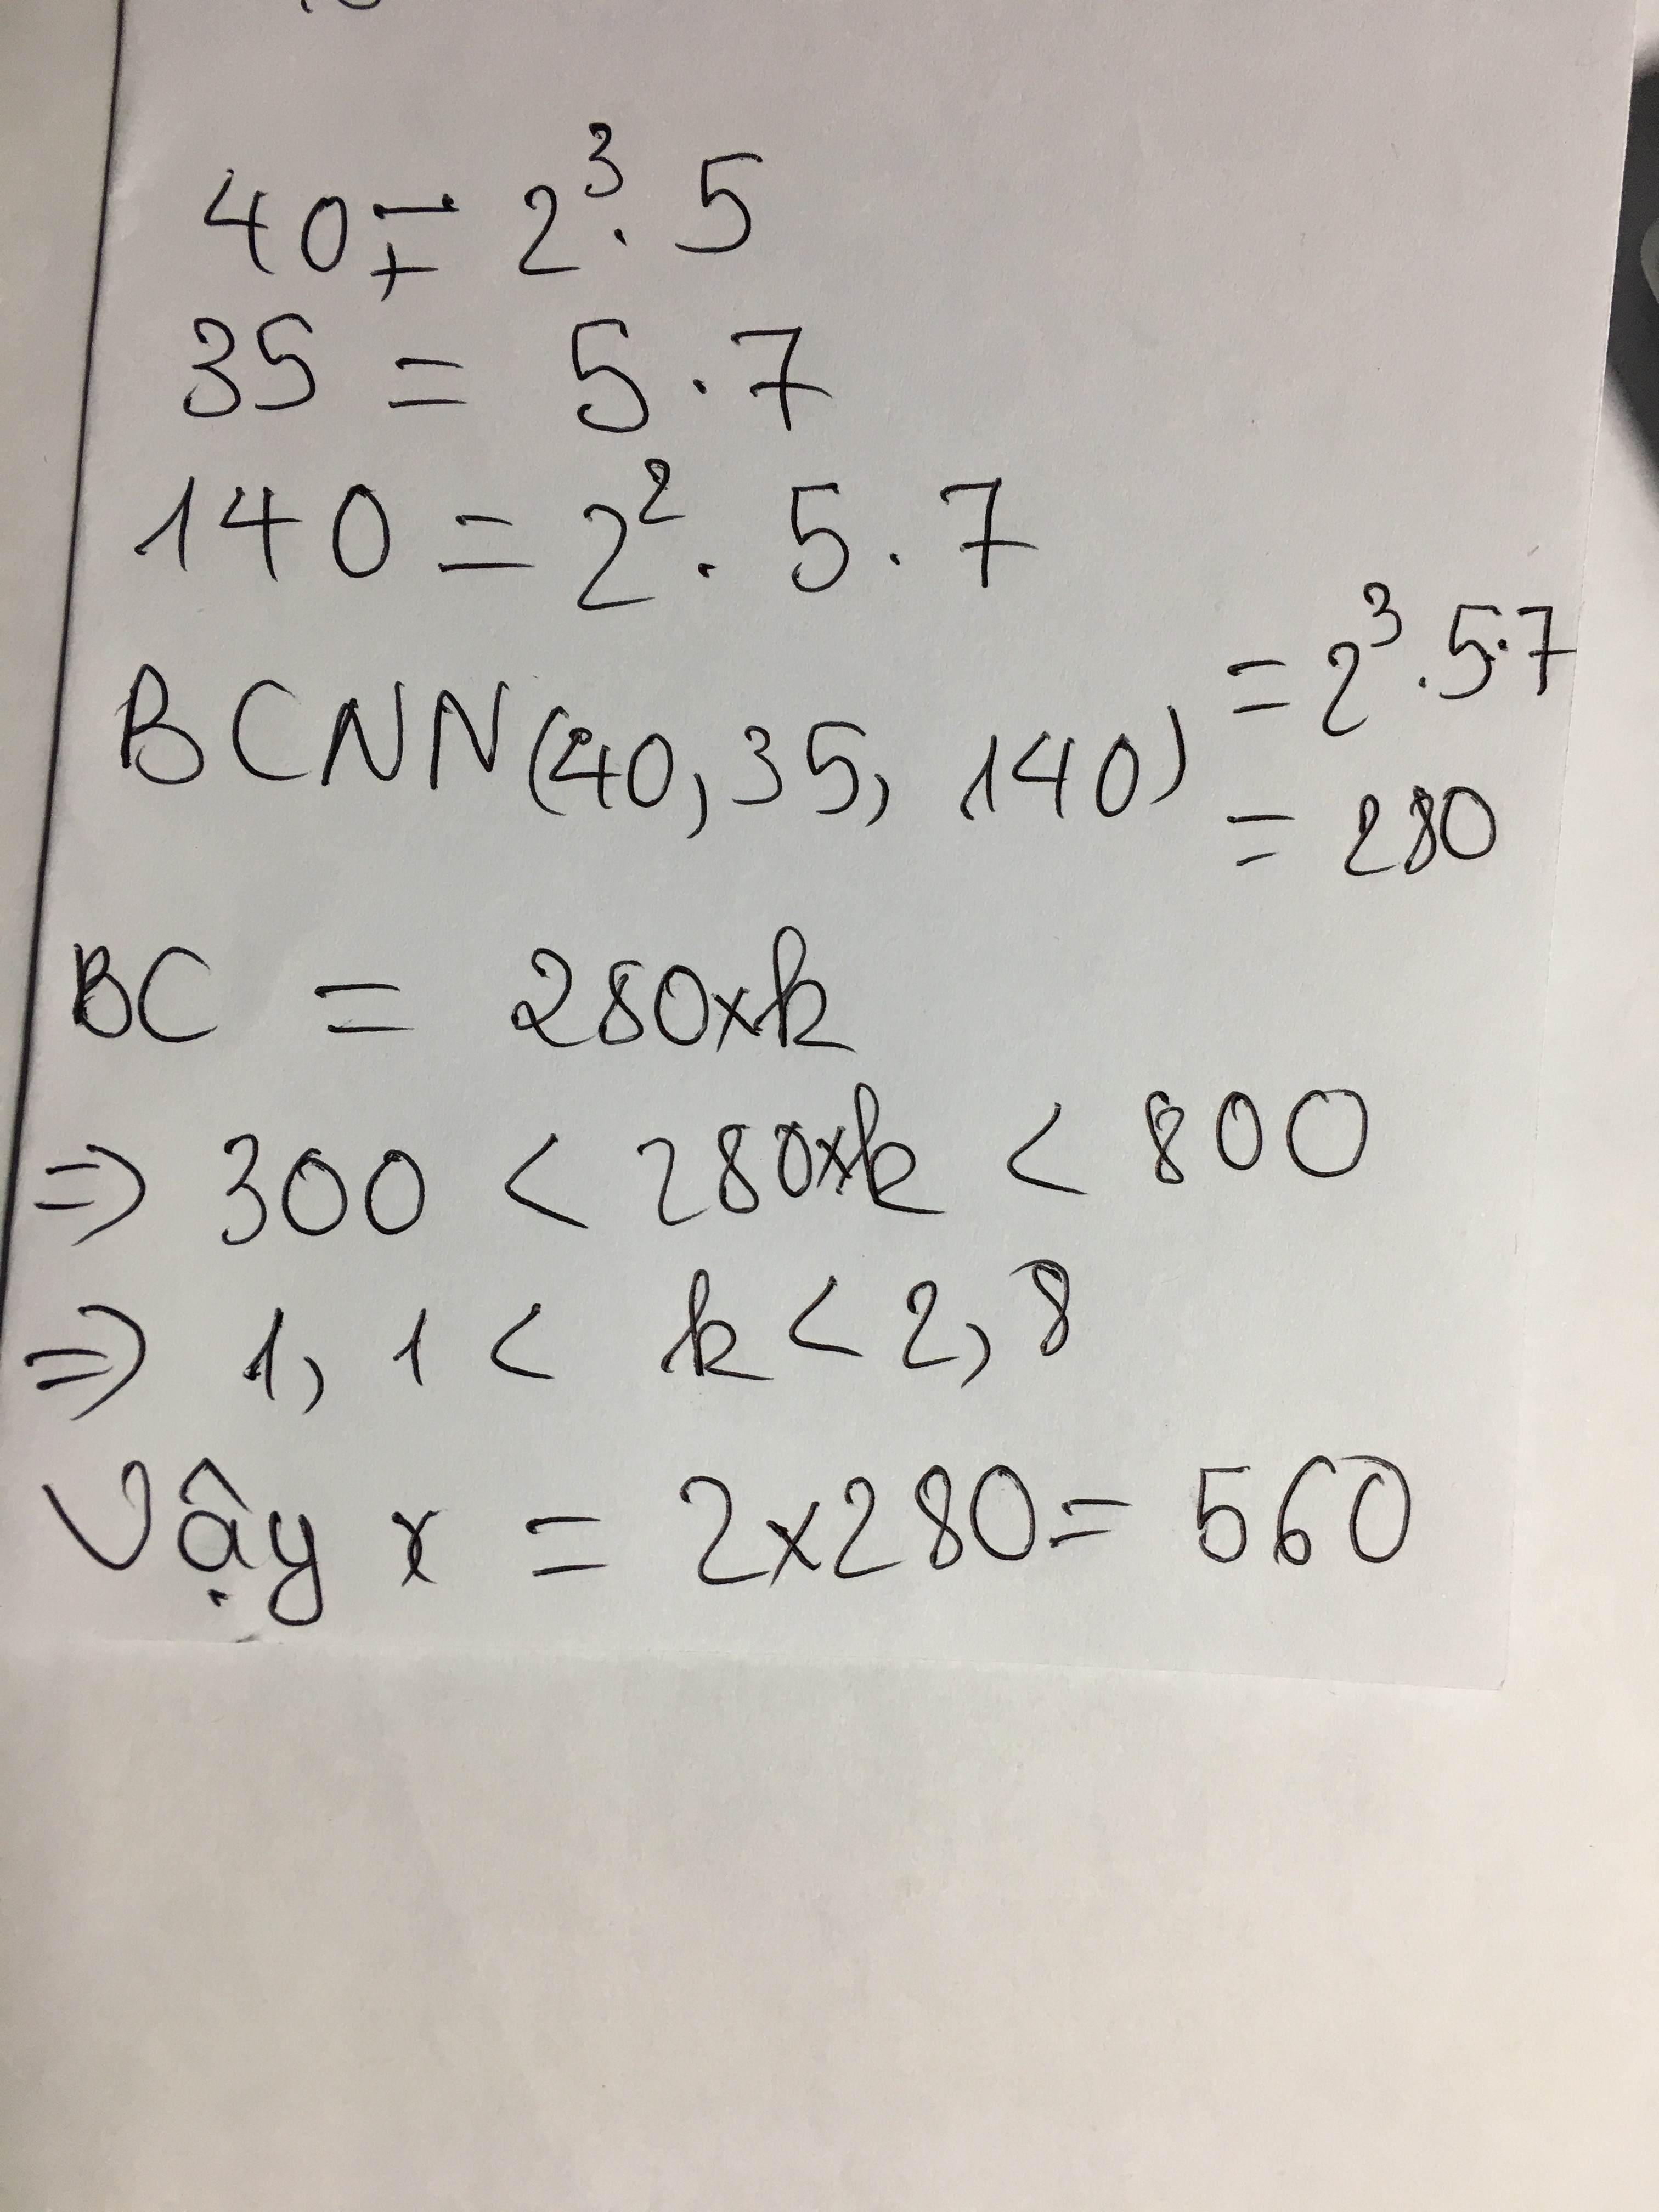 40 = 2³ . 5
35 = 5 . 7
140 = 2² . 5 . 7
BCNN(40, 35, 140) = 2³ . 5 . 7
= 280
BC = 280xk
=> 300 < 280xk < 800
=> 1, 1 < k < 2, 8
Vậy x = 2x280 = 560